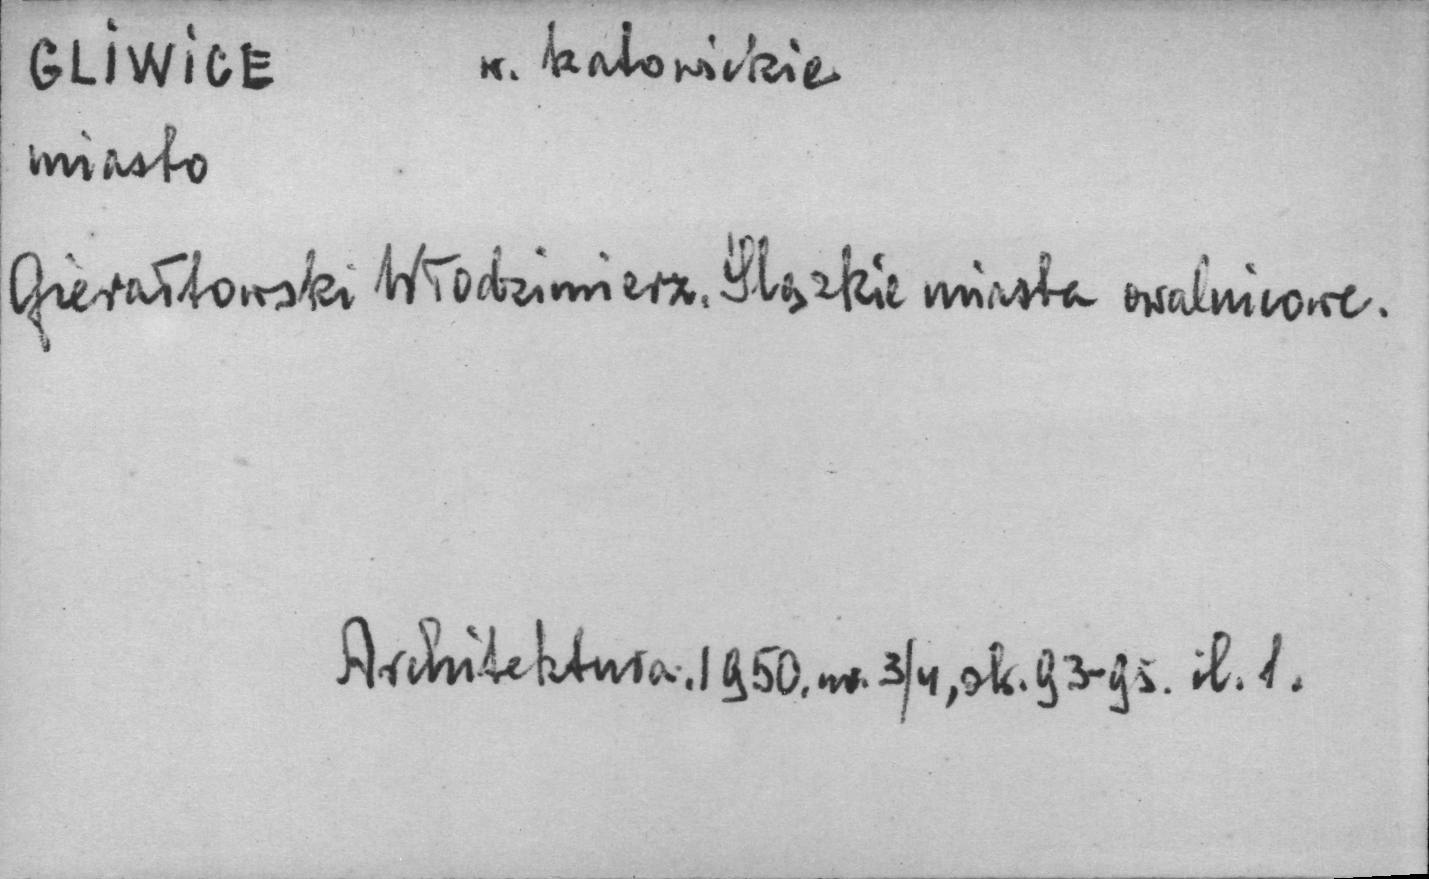 GLIWICE w. katowickie
miasto
Gierałtowski Włodzimierz. Śląskie miasta owalnicowe.
Architektura. 1950. nr. 3/4, str. 93-95. il. 1.